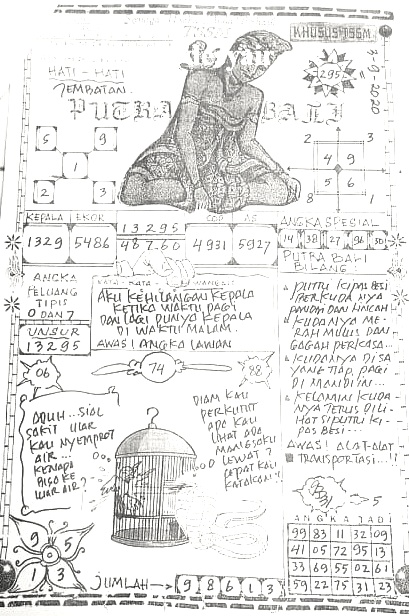 KHUSUS TSSM
7-9-2020
HATI - HATI
JEMBATAN
295
PUTRA BALI
5 9
1
2 3
2 3
4 9
5 6
8 1
KEPALA EKOR
1329 5486
13295
48760
COP AS
4931 5927
ANGKA SPESIAL
14 38 27 96 50
ANGKA
PELUANG
TIPIS
0 DAN 7
UNSUR
13295
AKU KEHILANGAN KEPALA
KETIKA WAKTU PAGI
DAN LAGI PUNYA KEPALA
DI WAKTU MALAM.
AWAS! ANGKA LAWAN
PUTRA BALI
BILANG:
PUTTU KIPAS BESI
BERKUDA NYA
PANDAI DAN LINCAH
KUDANYA ME-
RAH MULUS DAN
GAGAH PERKASA...
KUDANYA DI SA
YANG TIAP PAGI
DI MANDI IN...
KELAMIN KUDA-
NYA TERUS DI LI-
HAT SI PUTTU KI-
PAS BESI...
AWAS! ALAT-ALAT
TRANSPORTASI...!!
06
74
88
ADUH...SIAL
SAKIT ULAR
KAU NYEMPROT
AIR...
KENAPA
BISA KE
LUAR AIR?
DIAM KAU
PERKUTUT
APA KAU
LIHAT ADA
MANGSAKU
LEWAT?
CEPAT KAU
KATAKAN!!
5
ANGKA JADI
99 83 11 32 09
41 05 72 95 13
33 69 55 02 61
59 22 75 31 23
9 5
1 3
JUMLAH → 9 8 6 1 3